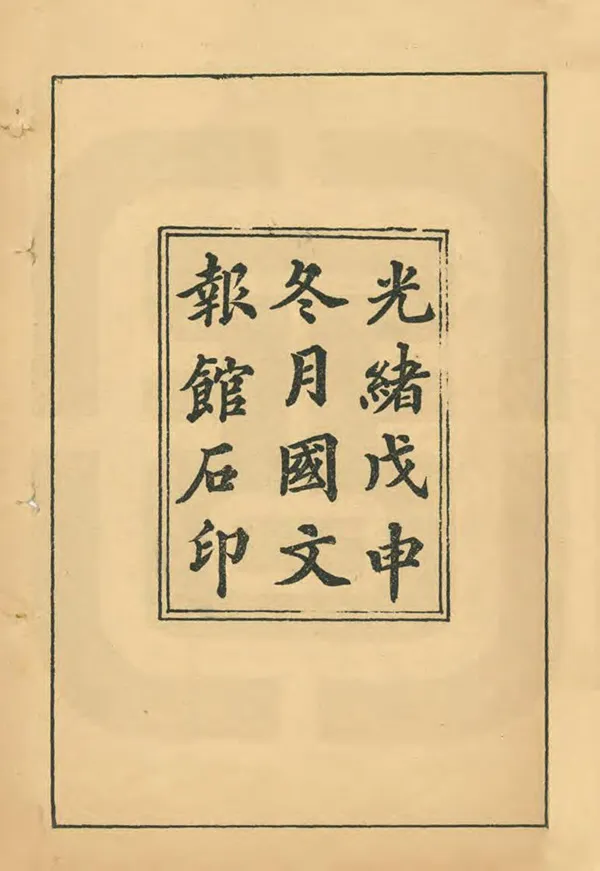 光緒戊申
冬月國文
報館石印